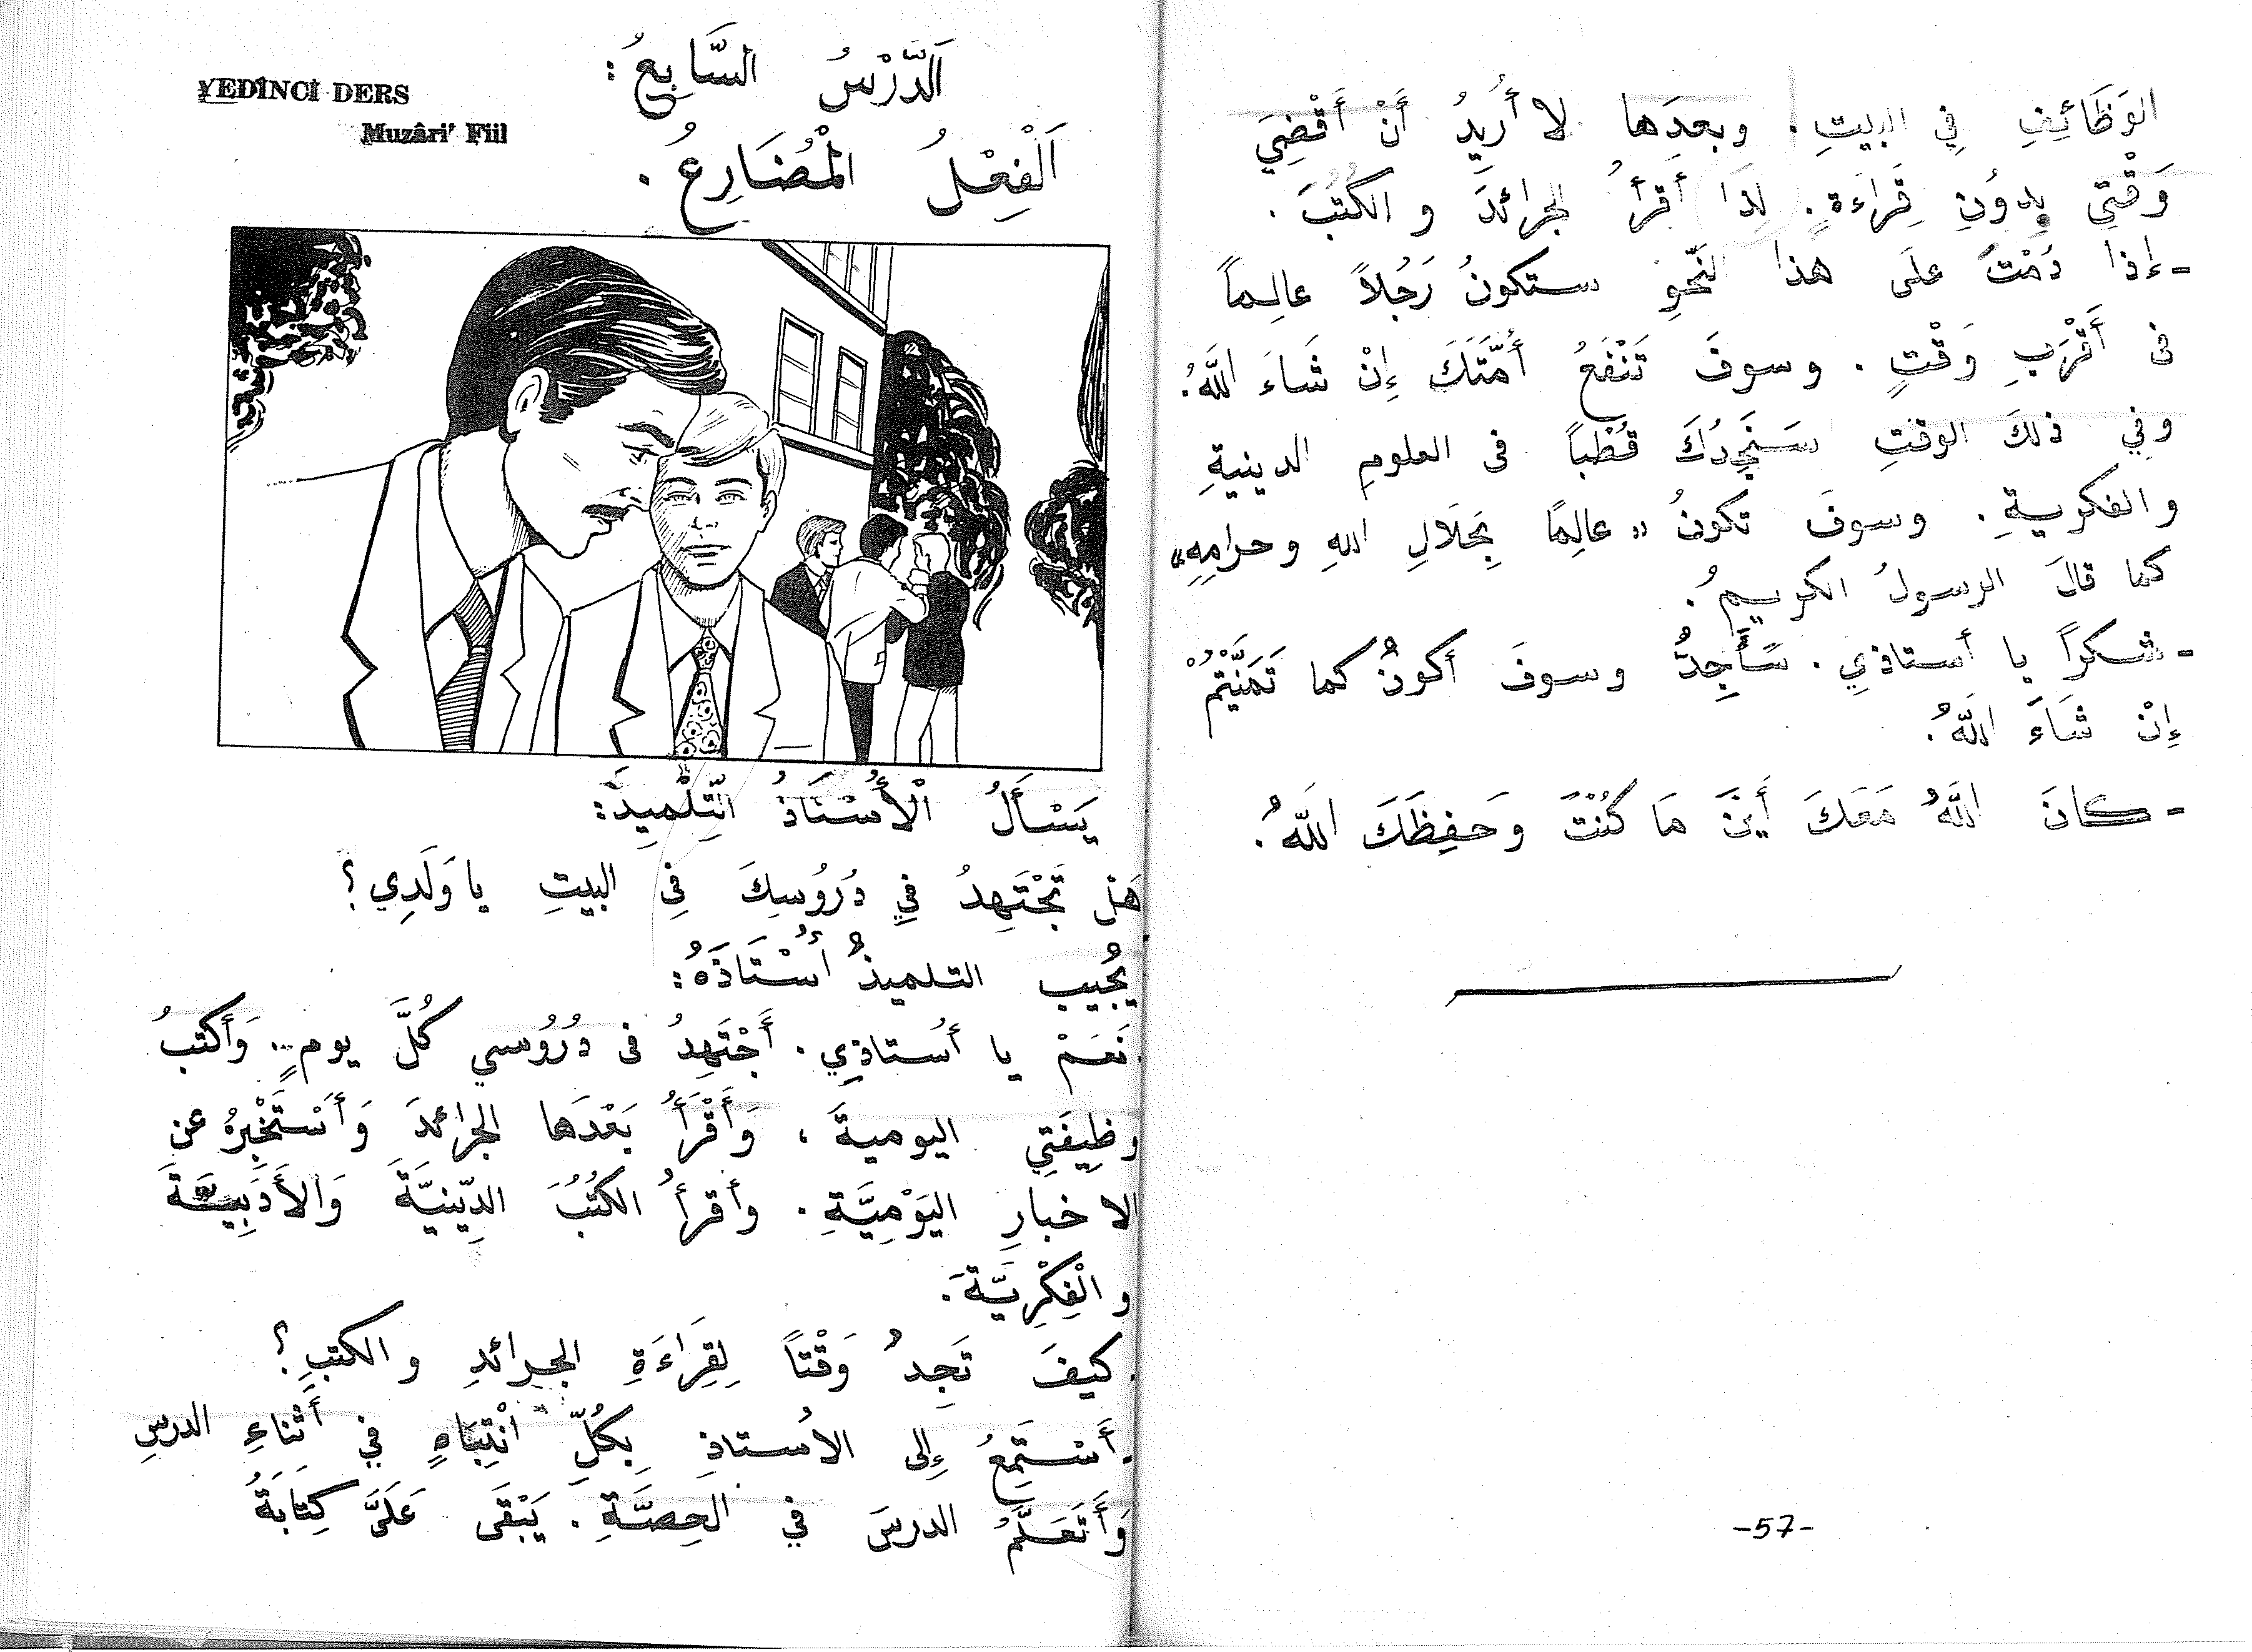 YEDİNCİ DERS
Muzâri' Fiil
اَلدَّرْسُ السَّابِعُ :
اَلْفِعْلُ الْمُضَارِعُ .
يَسْأَلُ الْأُسْتَاذُ التِّلْمِيذَ :
هَلْ تَجْتَهِدُ فِي دُرُوسِكَ فِي البيتِ يا وَلَدِي ؟
يُجِيبُ التلميذُ أُسْتَاذَهُ :
- نَعَمْ يا أُستاذِي . أَجْتَهِدُ فى دُرُوسي كُلَّ يومٍ .. وَأكتبُ
وظِيفَتِي اليوميةَ ، وَأَقْرَأُ بَعْدَها الجرائدَ وَأَسْتَخْبِرُ عن
الاخبارِ اليَوْمِيَّةِ . وأقرأُ الكُتُبَ الدِّينيَّةَ وَالأَدَبِيَّةَ
والْفِكْرِيَّةَ .
- كيفَ تَجِدُ وَقْتاً لِقِرَاءَةِ الجرائدِ والكتبِ ؟
- أَسْتَمِعُ إِلى الاُستاذِ بِكُلِّ انْتِبَاهٍ فِي أَثْناءِ الدرسِ
وَأَتَعَلَّمُ الدرسَ في الحِصَّةِ . يَبْقَى عَلَىَّ كِتَابَةُ
الوَظَائِفِ فِي البيتِ . وبعدَها لا أُرِيدُ أَنْ أَقْضِيَ
وَقْتِي بِدوُنِ قِرَاءَةٍ . لِذَا أَقرأُ الجرائدَ والكُتُبَ .
- إذا دُمْتَ علَى هذا النَّحوِ ستكونُ رَجُلاً عالِماً
فى أَقْرَبِ وَقْتٍ . وسوفَ تَنْفَعُ أُمَّتَكَ إِنْ شَاءَ اللهُ .
وفي ذلكَ الوقتِ سَنَجِدُكَ قُطْباً فى العلومِ الدينيةِ
والفكريةِ . وسوفَ تكونُ « عالِمًا بِحَلَالِ اللهِ وحرامِهِ »
كما قالَ الرسولُ الكريمُ .
- شكراً يا أستاذي . سَأَجِدُّ وسوفَ أكونُ كما تَمَنَّيْتُمْ
إِنْ شَاءَ اللهُ .
- كانَ اللهُ مَعَكَ أَيْنَ مَا كُنْتَ وَحَفِظَكَ اللهُ .
-57-